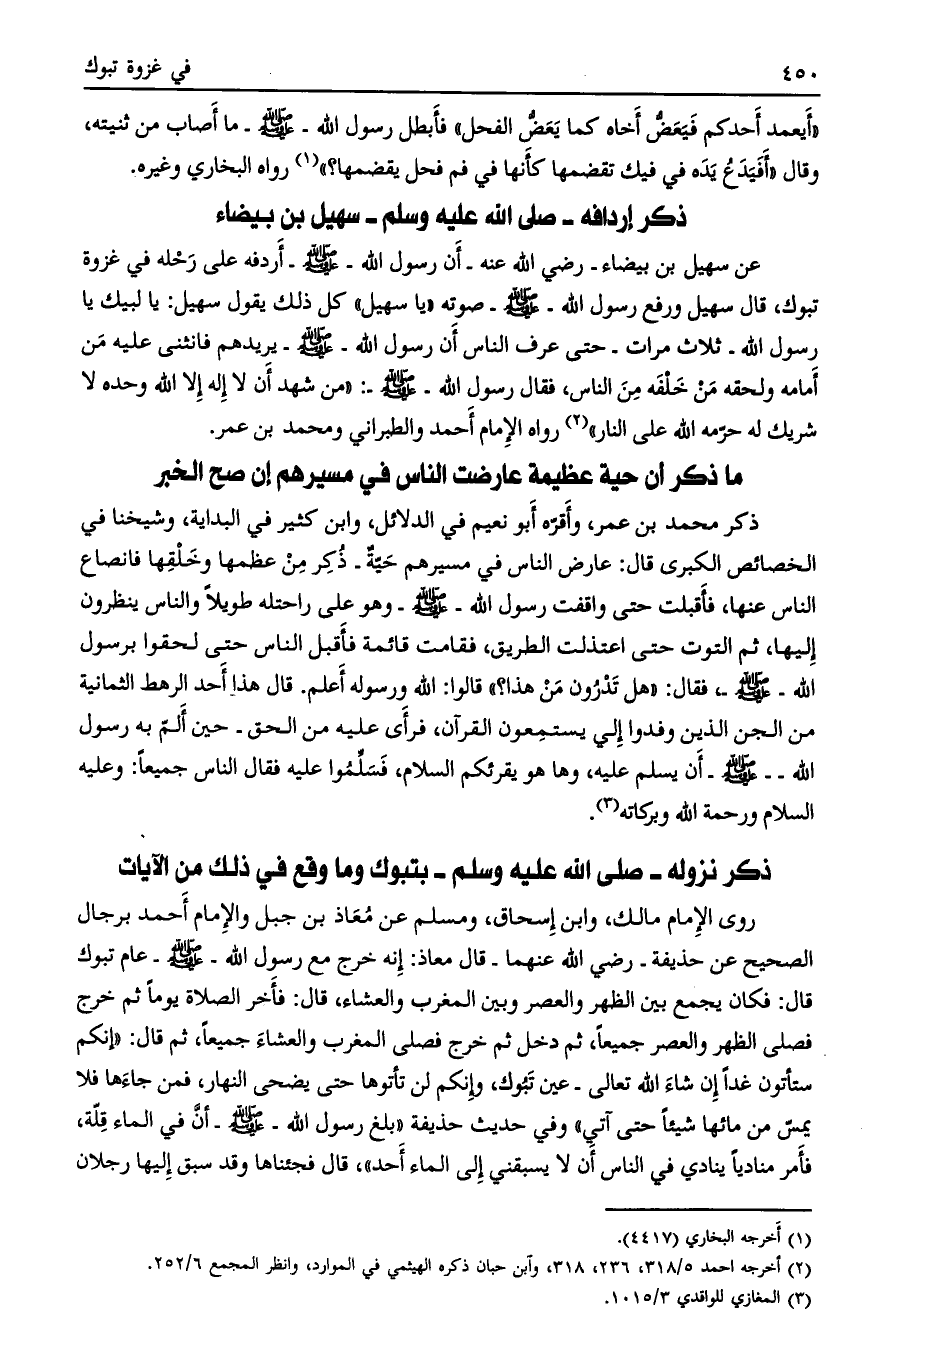 ٤٥٠
في غزوة تبوك
«أَيعمد أَحدكم فَيَعَضُّ أَخاه كما يَعَضُّ الفحل» فأَبطل رسول الله ـ ﷺ ـ ما أَصاب من ثنيته،
وقال «أَفَيَدَعُ يَدَه في فيك تقضمها كأَنها في فم فحل يقضمها؟»(١) رواه البخاري وغيره.
ذكر إردافه ـ صلى الله عليه وسلم ـ سهيل بن بيضاء
عن سهيل بن بيضاء ـ رضي الله عنه ـ أَن رسول الله ـ ﷺ ـ أَردفه على رَحْله في غزوة
تبوك، قال سهيل ورفع رسول الله ـ ﷺ ـ صوته «يا سهيل» كل ذلك يقول سهيل: يا لبيك يا
رسول الله ـ ثلاث مرات ـ حتى عرف الناس أَن رسول الله ـ ﷺ ـ يريدهم فانثنى عليه مَن
أَمامه ولحقه مَنْ خَلْفَه مِنَ الناس، فقال رسول الله ـ ﷺ ـ: «من شهد أَن لا إِله إِلا الله وحده لا
شريك له حرّمه الله على النار»(٢) رواه الإِمام أَحمد والطبراني ومحمد بن عمر.
ما ذكر أن حية عظيمة عارضت الناس في مسيرهم إن صح الخبر
ذكر محمد بن عمر، وأَقرّه أَبو نعيم في الدلائل، وابن كثير في البداية، وشيخنا في
الخصائص الكبرى قال: عارض الناس في مسيرهم حَيّةٌ ـ ذُكِر مِنْ عظمها وخَلْقِها فانصاع
الناس عنها، فأَقبلت حتى واقفت رسول الله ـ ﷺ ـ وهو على راحتله طويلاً والناس ينظرون
إِليها، ثم التوت حتى اعتذلت الطريق، فقامت قائمة فأَقبل الناس حتى لحقوا برسول
الله ـ ﷺ ـ، فقال: «هل تَدْرُون مَنْ هذا؟» قالوا: الله ورسوله أَعلم. قال هذا أَحد الرهط الثمانية
من الجن الذين وفدوا إِلي يستمعون القرآن، فرأَى عليه من الحق ـ حين أَلمّ به رسول
الله ـ ـ ﷺ ـ أَن يسلم عليه، وها هو يقرئكم السلام، فَسَلِّمُوا عليه فقال الناس جميعاً: وعليه
السلام ورحمة الله وبركاته(٣).
ذكر نزوله ـ صلى الله عليه وسلم ـ بتبوك وما وقع في ذلك من الآيات
روى الإِمام مالك، وابن إِسحاق، ومسلم عن مُعَاذ بن جبل والإِمام أَحمد برجال
الصحيح عن حذيفة ـ رضي الله عنهما ـ قال معاذ: إِنه خرج مع رسول الله ـ ﷺ ـ عام تبوك
قال: فكان يجمع بين الظهر والعصر وبين المغرب والعشاء، قال: فأَخر الصلاة يوماً ثم خرج
فصلى الظهر والعصر جميعاً، ثم دخل ثم خرج فصلى المغرب والعشاءَ جميعاً، ثم قال: «إِنكم
ستأتون غداً إِن شاءَ الله تعالى ـ عين تَبُوك، وإِنكم لن تأتوها حتى يضحى النهار، فمن جاءَها فلا
يمسّ من مائها شيئاً حتى آتي» وفي حديث حذيفة «بلغ رسول الله ـ ﷺ ـ أنَّ في الماء قِلّة،
فأَمر منادياً ينادي في الناس أَن لا يسبقني إِلى الماء أَحد»، قال فجئناها وقد سبق إِليها رجلان
(١) أَخرجه البخاري (٤٤١٧).
(٢) أخرجه احمد ٣١٨/٥، ٢٣٦، ٣١٨، وآبن حبان ذكره الهيثمي في الموارد، وانظر المجمع ٢٥٢/٦.
(٣) المغازي للواقدي ١٠١٥/٣.